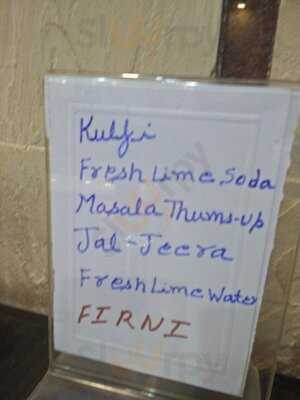 Kulfi
Fresh Lime Soda
Masala Thums-up
Jal-Jeera
Fresh Lime Water
FIRNI